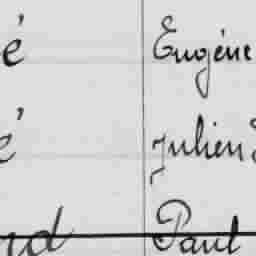 é Eugène
é Julien
nd Paul